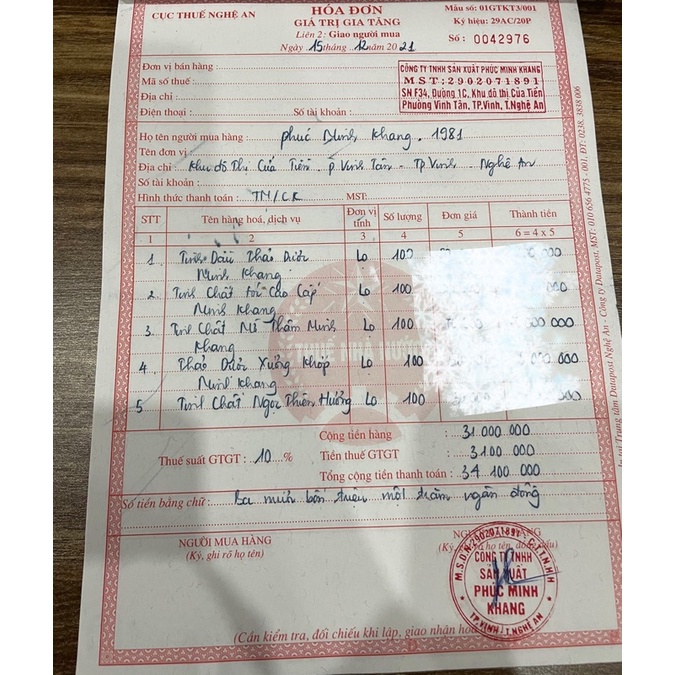 CỤC THUẾ NGHỆ AN
HÓA ĐƠN
GIÁ TRỊ GIA TĂNG
Liên 2: Giao người mua
Ngày 15 tháng 12 năm 2021
Mẫu số: 01GTKT3/001
Ký hiệu: 29AC/20P
Số : 0042976
Đơn vị bán hàng
Mã số thuế:
Địa chỉ
Điện thoại : Số tài khoản:
CÔNG TY TNHH SẢN XUẤT PHÚC MINH KHANG
MST: 2902071891
SN F34, Đường 1C, Khu đô thị Cửa Tiền
Phường Vinh Tân, TP.Vinh, T.Nghệ An
Họ tên người mua hàng : Phúc Minh Khang . 1981
Tên đơn vị :
Địa chỉ : Khu đô Thị Cửa Tiền - P Vinh Tân - Tp Vinh - Nghệ An
Số tài khoản:
Hình thức thanh toán : TM/CK MST:
STT Tên hàng hoá, dịch vụ Đơn vị tính Số lượng Đơn giá Thành tiền
1 2 3 4 5 6 = 4 x 5
1. Tinh Dầu Thảo Dược Lo 100 000
Minh Khang
2. Tinh Chất Tỏi Cao Cấp Lo 100 000
Minh Khang
3. Tinh Chất Mũ Thần Minh Lo 100 000 000
Khang
4 Thảo Dược Xương Khớp Lo 100 000 000
Minh Khang
5 Tinh Chất Ngọc Thiên Hương Lo 100 000
THUẾ PHÚ VƯỢNG
Cộng tiền hàng : 31.000 000
Thuế suất GTGT : 10 % Tiền thuế GTGT : 3.100 000
Tổng cộng tiền thanh toán : 34 100 000
Số tiền bằng chữ : Ba mươi bốn triệu một trăm ngàn đồng
NGƯỜI MUA HÀNG
(Ký, ghi rõ họ tên)
M.S.D.N:2902071891-C.T.T.N.H.H
CÔNG TY TNHH
SẢN XUẤT
PHÚC MINH
KHANG
TP.VINH T.NGHỆ AN
(Cần kiểm tra, đối chiếu khi lập, giao nhận hóa
In tại Trung tâm Datapost Nghệ An - Công ty Datapost, MST: 010 656 4775 - 001, ĐT: 0238. 3838 006